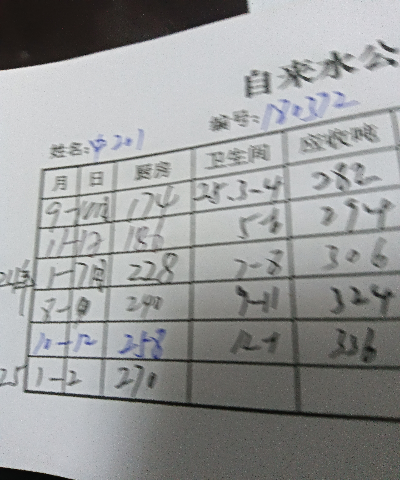 自来水公
姓名: 中201 编号: 180372
月 日 厨房 卫生间 应收吨
9-10月 174 25.3-4 282
11-12 186 5-6 294
24年 1-7月 228 7-8 306
8-9 240 9-11 324
10-12 258 12-1 336
25 1-2 270